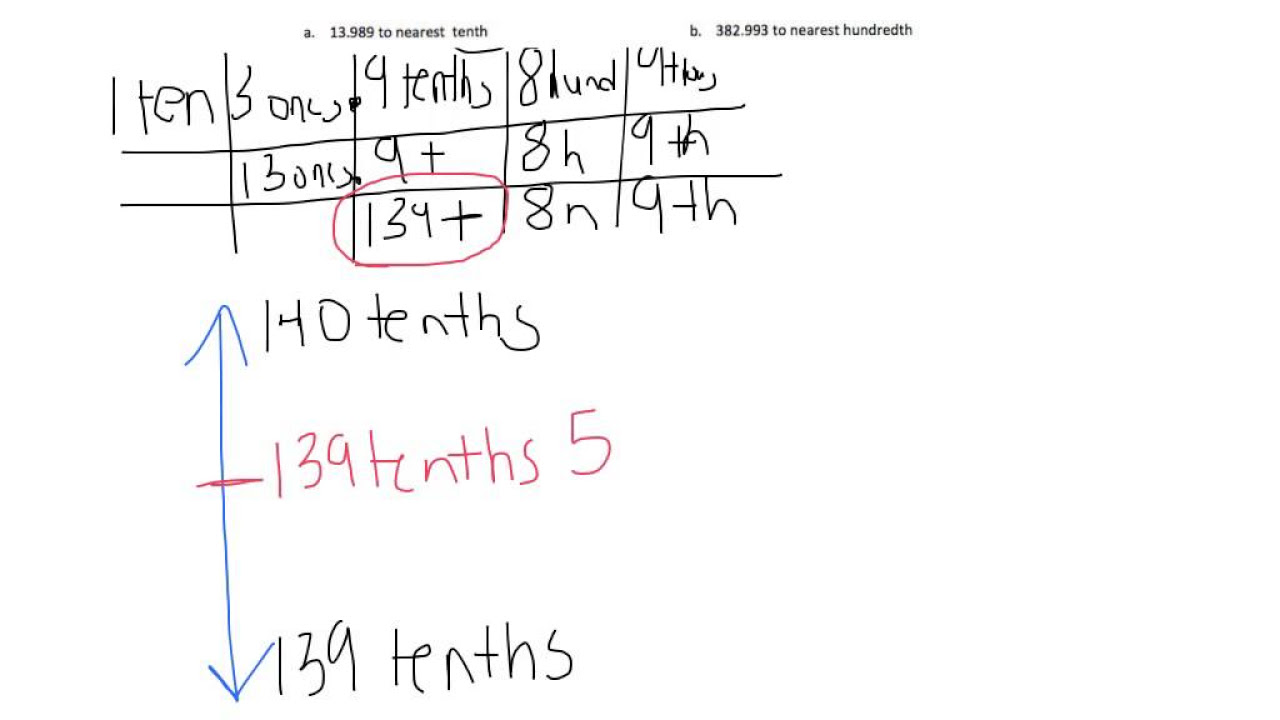 a. 13.989 to nearest tenth b. 382.993 to nearest hundredth
1 ten 3 ones. 9 tenths 8 hund 9 thous
13 ones. 9 t 8 h 9 th
139 t 8 h 9 th
140 tenths
139 tenths 5
139 tenths